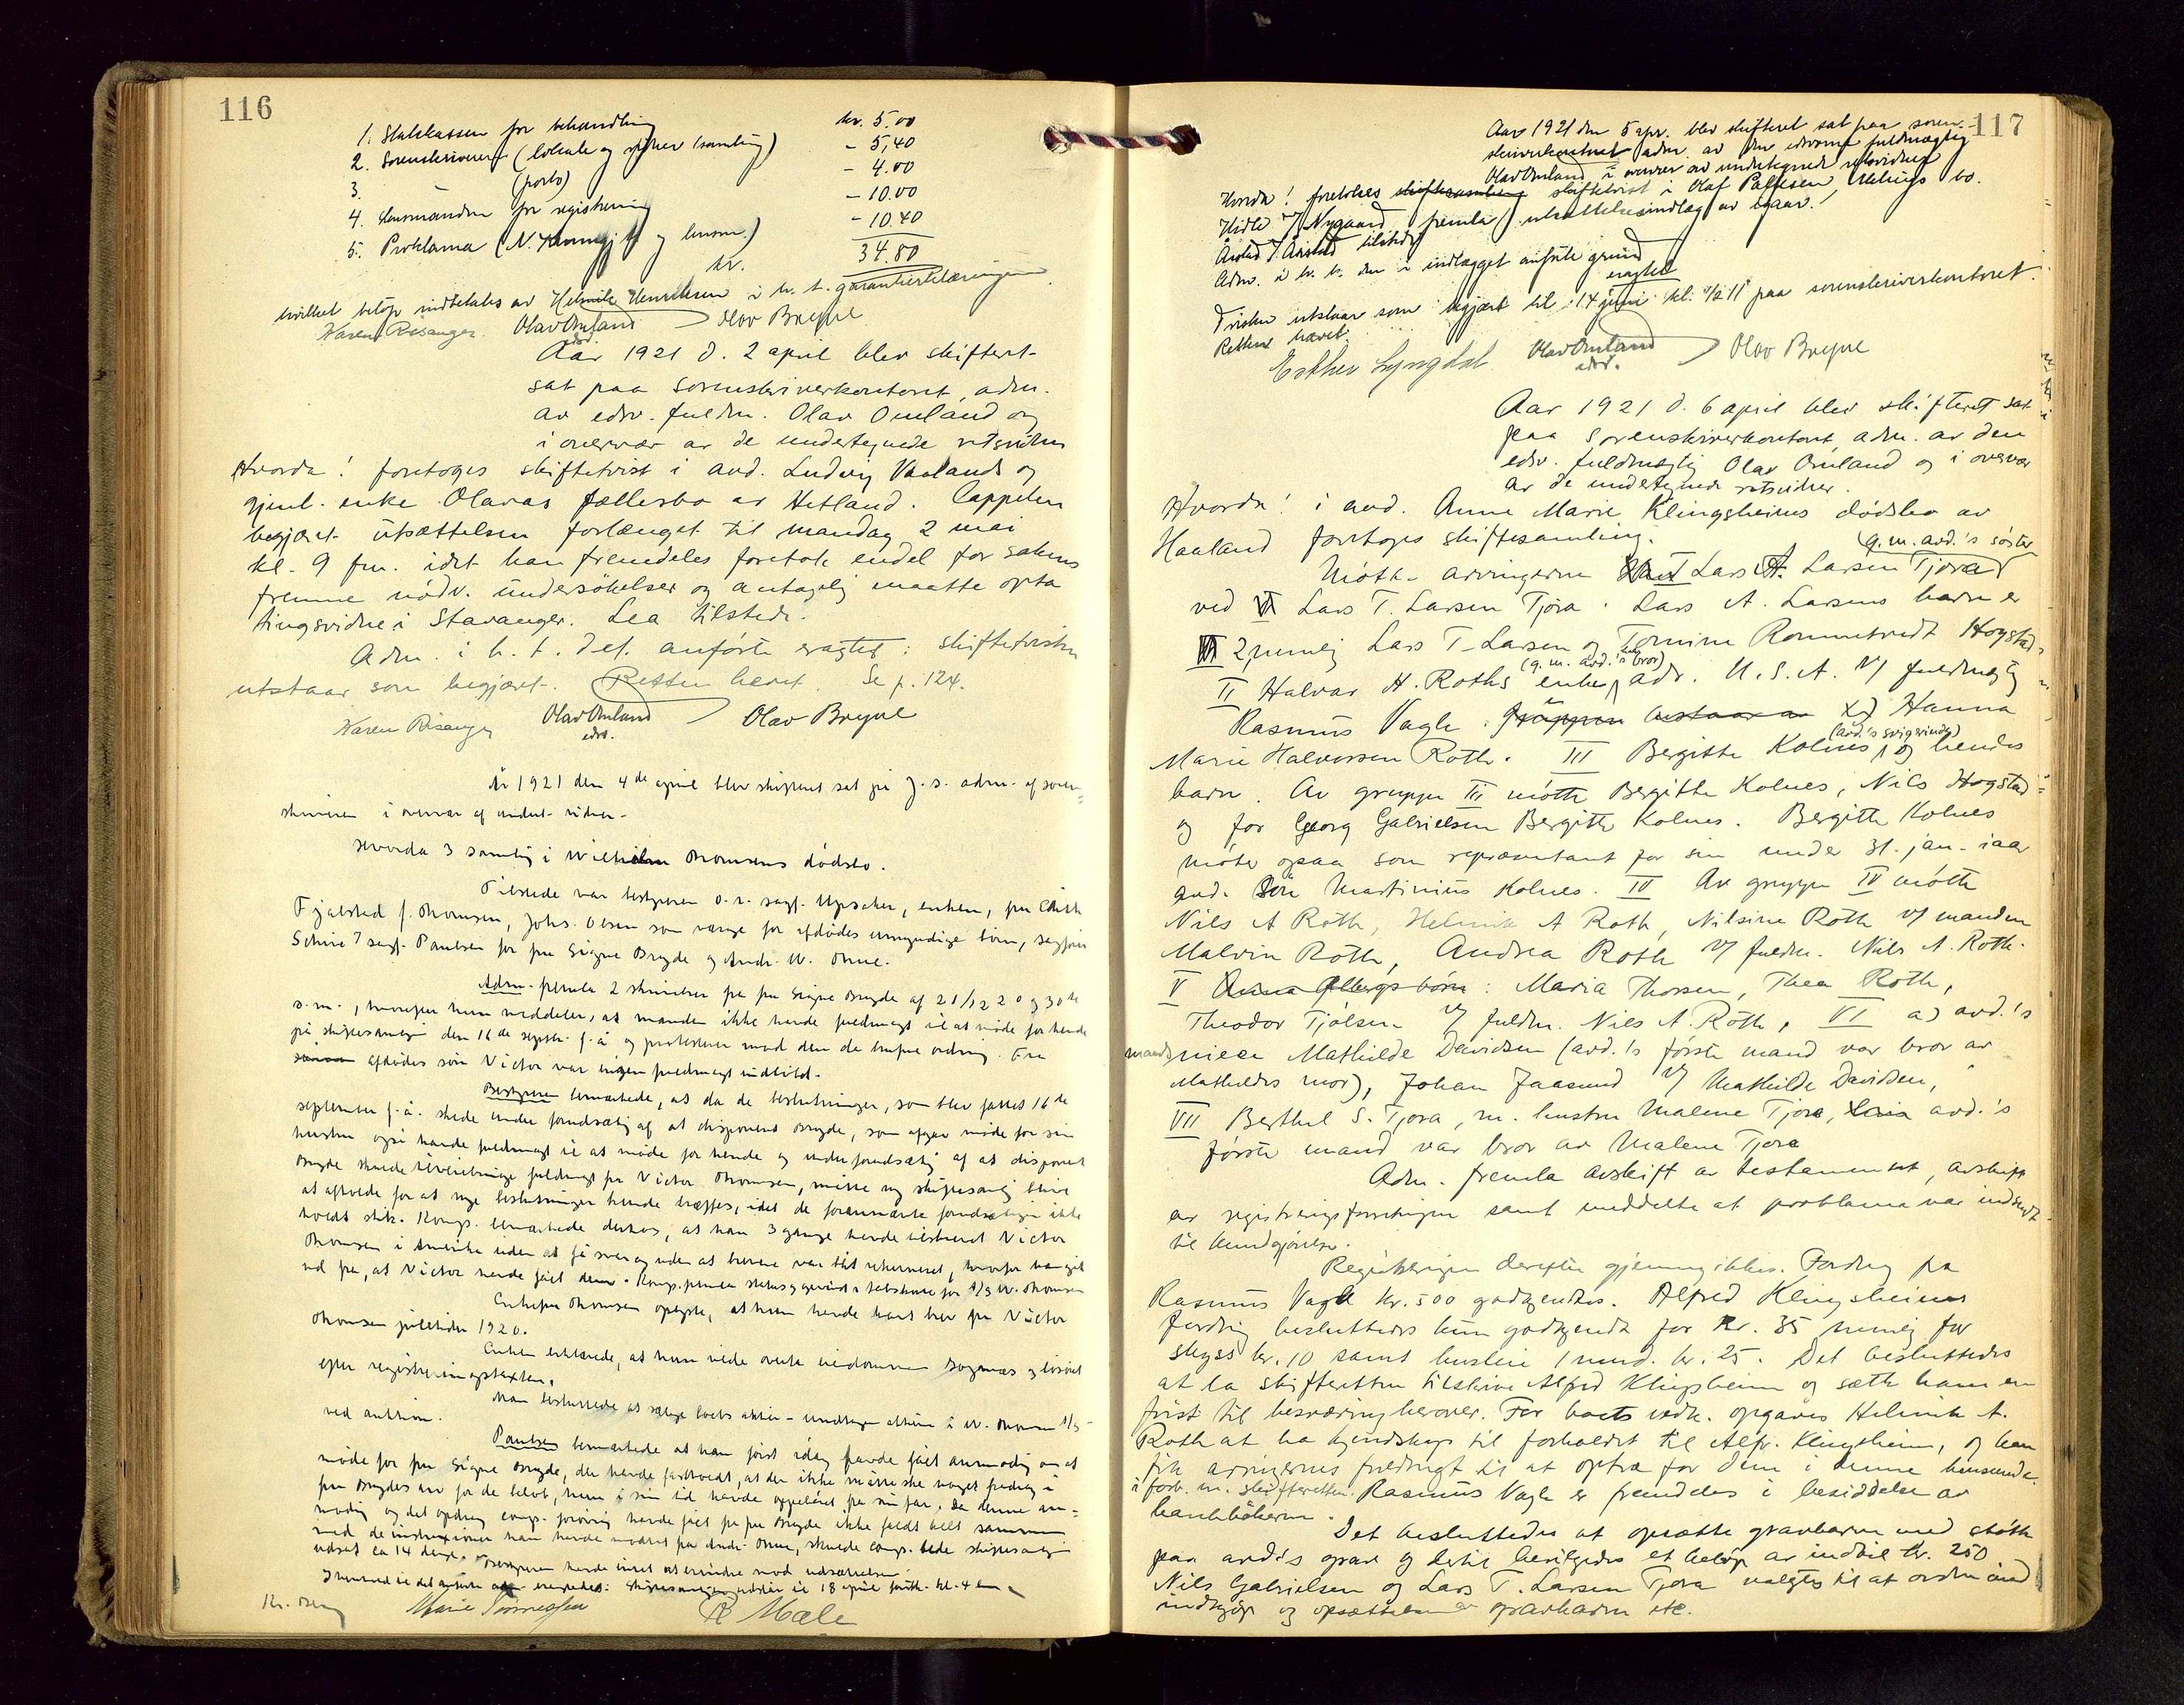 116
1. Statskassen for behandling kr. 5.00
2. Sorenskriveren (lokale og skiftesamling) - 5,40
3. — (porto) - 4.00
4. Lensmanden for registrering - 10.00
5. Proklama (N. Kunngj.t. og lensm.) - 10.40
kr. 34.80
hvilket beløp indbetales av Helmik Henriksen i h. t. garantierklæringen.
Karen Risanger. Olav Omland edsv. Olav Brynl
Aar 1921 d. 2 april blev skifteret
sat paa sorenskriverkontoret, adm.
av edsv. fuldm. Olav Omland og
i overvær av de undertegnede retsvidner
Hvorda! foretoges skiftetvist i avd. Ludvig Vaalands og
gjenl. enke Olavas fællesbo av Hetland. Cappelen
begjæret utsættelsen forlænget til mandag 2 mai
kl. 9 fm. idet han fremdeles foretok endel for sakens
fremme nødv. undersøkelser og antagelig maatte opta
tingsvidne i Stavanger. Lea tilstede.
Adm. i h. t. det anførte eragtet: skiftetvisten
utstaar som begjært. Retten hævet. Se p. 124.
Karen Risanger Olav Omland edsv. Olav Brynl
År 1921 den 4de april blev skifteret sat på J. s. adm. af soren-
skriveren i overvær af undert. vidner.
Hvorda 3 samling i Wilhelm Thomsens dødsbo.
Tilstede var bestyreren o.r. sagf. Upsaker, enken, fru Edith
Fjalsted f. Thomsen, Johs. Olsen som verge for afdødes umyndige børn, sagfører
Schiøs sagf. Paulsen for fru Signe Brygde og Andr. W. Omre.
Adm. fremla 2 skrivelser fra fru Signe Brygde af 21/12 20 og 30te
s.m., hvorefter hun meddeler, at manden ikke havde fuldmagt til at møde for hende
på skiftesamlingen den 16de septbr. f.å. og protesterer mod den da trufne ordning. Fra
afdødes søn Victor var ingen fuldmagt indløbet.
Bestyreren bemærkede, at da de beslutninger, som blev fattet 16de
september f.å. skede under forudsætning af at disponent Brygde, som afgav møde for sin
hustru også havde fuldmagt til at møde for hende og under forudsætning af at disponent
Brygde skulde tilveiebringe fuldmagt fra Victor Thomsen, måtte ny skiftesamling blive
at afholde for at nye beslutninger kunde træffes, idet de forannævnte forudsætninger ikke
holdt stik. Komp. bemærkede derhos, at han 3 gange havde tilskrevet Victor
Thomsen i Amerika uden at få svar og uden at brevene var blit returneret, hvorfor han gik
ud fra, at Victor havde fået dem. Komp. fremla status og gevinst & tabskonto for 1/3 W. Thomsen
Enkefru Thomsen oplyste, at hun havde havt brev fra Victor
Thomsen juletider 1920.
Enken erklærede, at hun vilde overta eiendommen Sognnæs og løsøret
efter registreringstaxten.
Man besluttede at sælge boets aktier - undtagen aktierne i W. Thomsen A/S -
ved auktion.
Paulsen bemærkede at han først idag havde fået anmodning om at
møde for fru Signe Brygde, der havde fastholdt, at der ikke måtte ske noget fradrag i
fru Brygdes arv for de beløb, hun i sin tid havde oppebåret fra sin far. Da denne an-
modning og det opdrag comp. forøvrig havde fået fra fru Brygde ikke faldt helt sammen
med de instruktioner han havde modtat fra Andr. Omre, skulde comp. bede skiftesamlingen
udsat ca 14 dage. Bestyreren havde intet at erindre mod udsættelsen.
I henhold til det anførte eragtedes: Skiftesamlingen udstår til 18 april førstk. kl. 4 em.
Marie Tønnessen R Mæle
117
Aar 1921 den 5 apr. blev skifteret sat paa soren-
skriverkontoret adm. av den edsvorne fuldmægtig
Olav Omland i overvær av undertegnede retsvidner
Hvorda! foretokes skiftesamling skiftetvist i Olaf Pallesen Meling's bo.
Hidle v/ Nygaard fremla utsættelsesindlæg av igaar.
Årstad v/ Aarstad tilstede.
Adm. i h. t. den i indlægget anførte grund
eragtet
Tvisten utstaar som begjært til 14 juni kl. 1/2 11 paa sorenskriverkontoret.
Retten hævet.
Esther Lyngdal Olav Omland edsv. Olav Brynl
Aar 1921 d. 6 april blev skifteret sat
paa sorenskriverkontoret, adm. av den
edsv. fuldmægtig Olav Omland og i overvær
av de undertegnede retsvidner.
Hvorda! i avd. Anne Marie Klingsheims dødsbo av
Haaland foretoges skiftesamling.
(g.m. avd.'s søster)
Møtte arvingerne I Lars A. Larsen Tjora
ved Lars T. Larsen Tjora. Lars A. Larsens barn er
2, nemlig Lars T. Larsen og Tomine Rommetvedt Hogstad
II Halvar H. Roths (g.m. avd.'s bror) enke, adr. U.S.A. v/ fuldmægtig
Rasmus Vagle. Gruppen bestaar av x) Hanna
Marie Halvorsen Roth. III Bergitte Kolnes (avd.'s svigerinde), og hendes
barn. Av gruppe III møtte Bergitte Kolnes, Nils Hogstad
og for Georg Gabrielsen Bergitte Kolnes. Bergitte Kolnes
møter ogsaa som repræsentant for sin under 31. jan. iaar
avd. søn Martinius Kolnes. IV Av gruppe IV møtte
Nils A Roth, Helmik A Roth, Nilsine Roth v/ manden
Malvin Roth, Andrea Roth v/ fuldm. Nils A. Roth.
V : Maria Thorsen, Thea Roth,
Theodor Tjølsen v/ fuldm. Nils A. Roth, VI a) avd.'s
mands niece Mathilde Davidsen (avd.'s første mand var bror av
Mathildes mor), Johan Jaasund v/ Mathilde Davidsen,
VII Berthel S. Tjora, m. hustru Malene Tjora, avd.'s
første mand var bror av Malene Tjora
Adm. fremla avskrift av testamentet, avskrift
av registreringsforretningen samt meddelte at proklama var indsendt
til kundgjørelse.
Registreringen derefter gjennemgikkes. Fordring fra
Rasmus Vagle kr. 500 godkjendtes. Alfred Klingsheims
fordring besluttedes kun godkjendt for kr. 35 nemlig for
skyss kr. 10 samt husleie 1 mnd. kr. 25. Det besluttedes
at la skifteretten tilskrive Alfred Klingsheim og sætte ham en
frist til besværing herover. For boets vedk. opgaves Helmik A.
Roth at ha kjendskap til forholdet til Alfr. Klingsheim, og han
fik arvingernes fuldmagt til at optræ for dem i denne henseende
i forb. m. skifteretten. Rasmus Vagle er fremdeles i besiddelse av
bankbøkerne.
Det besluttedes at opsætte gravbarm med støtte
paa avd's grav og dertil bevilgedes et beløp av indtil kr. 250
Nils Gabrielsen og Lars T. Larsen Tjora valgtes til at ordne med
indkjøp og opsættelsen av gravbarm etc.